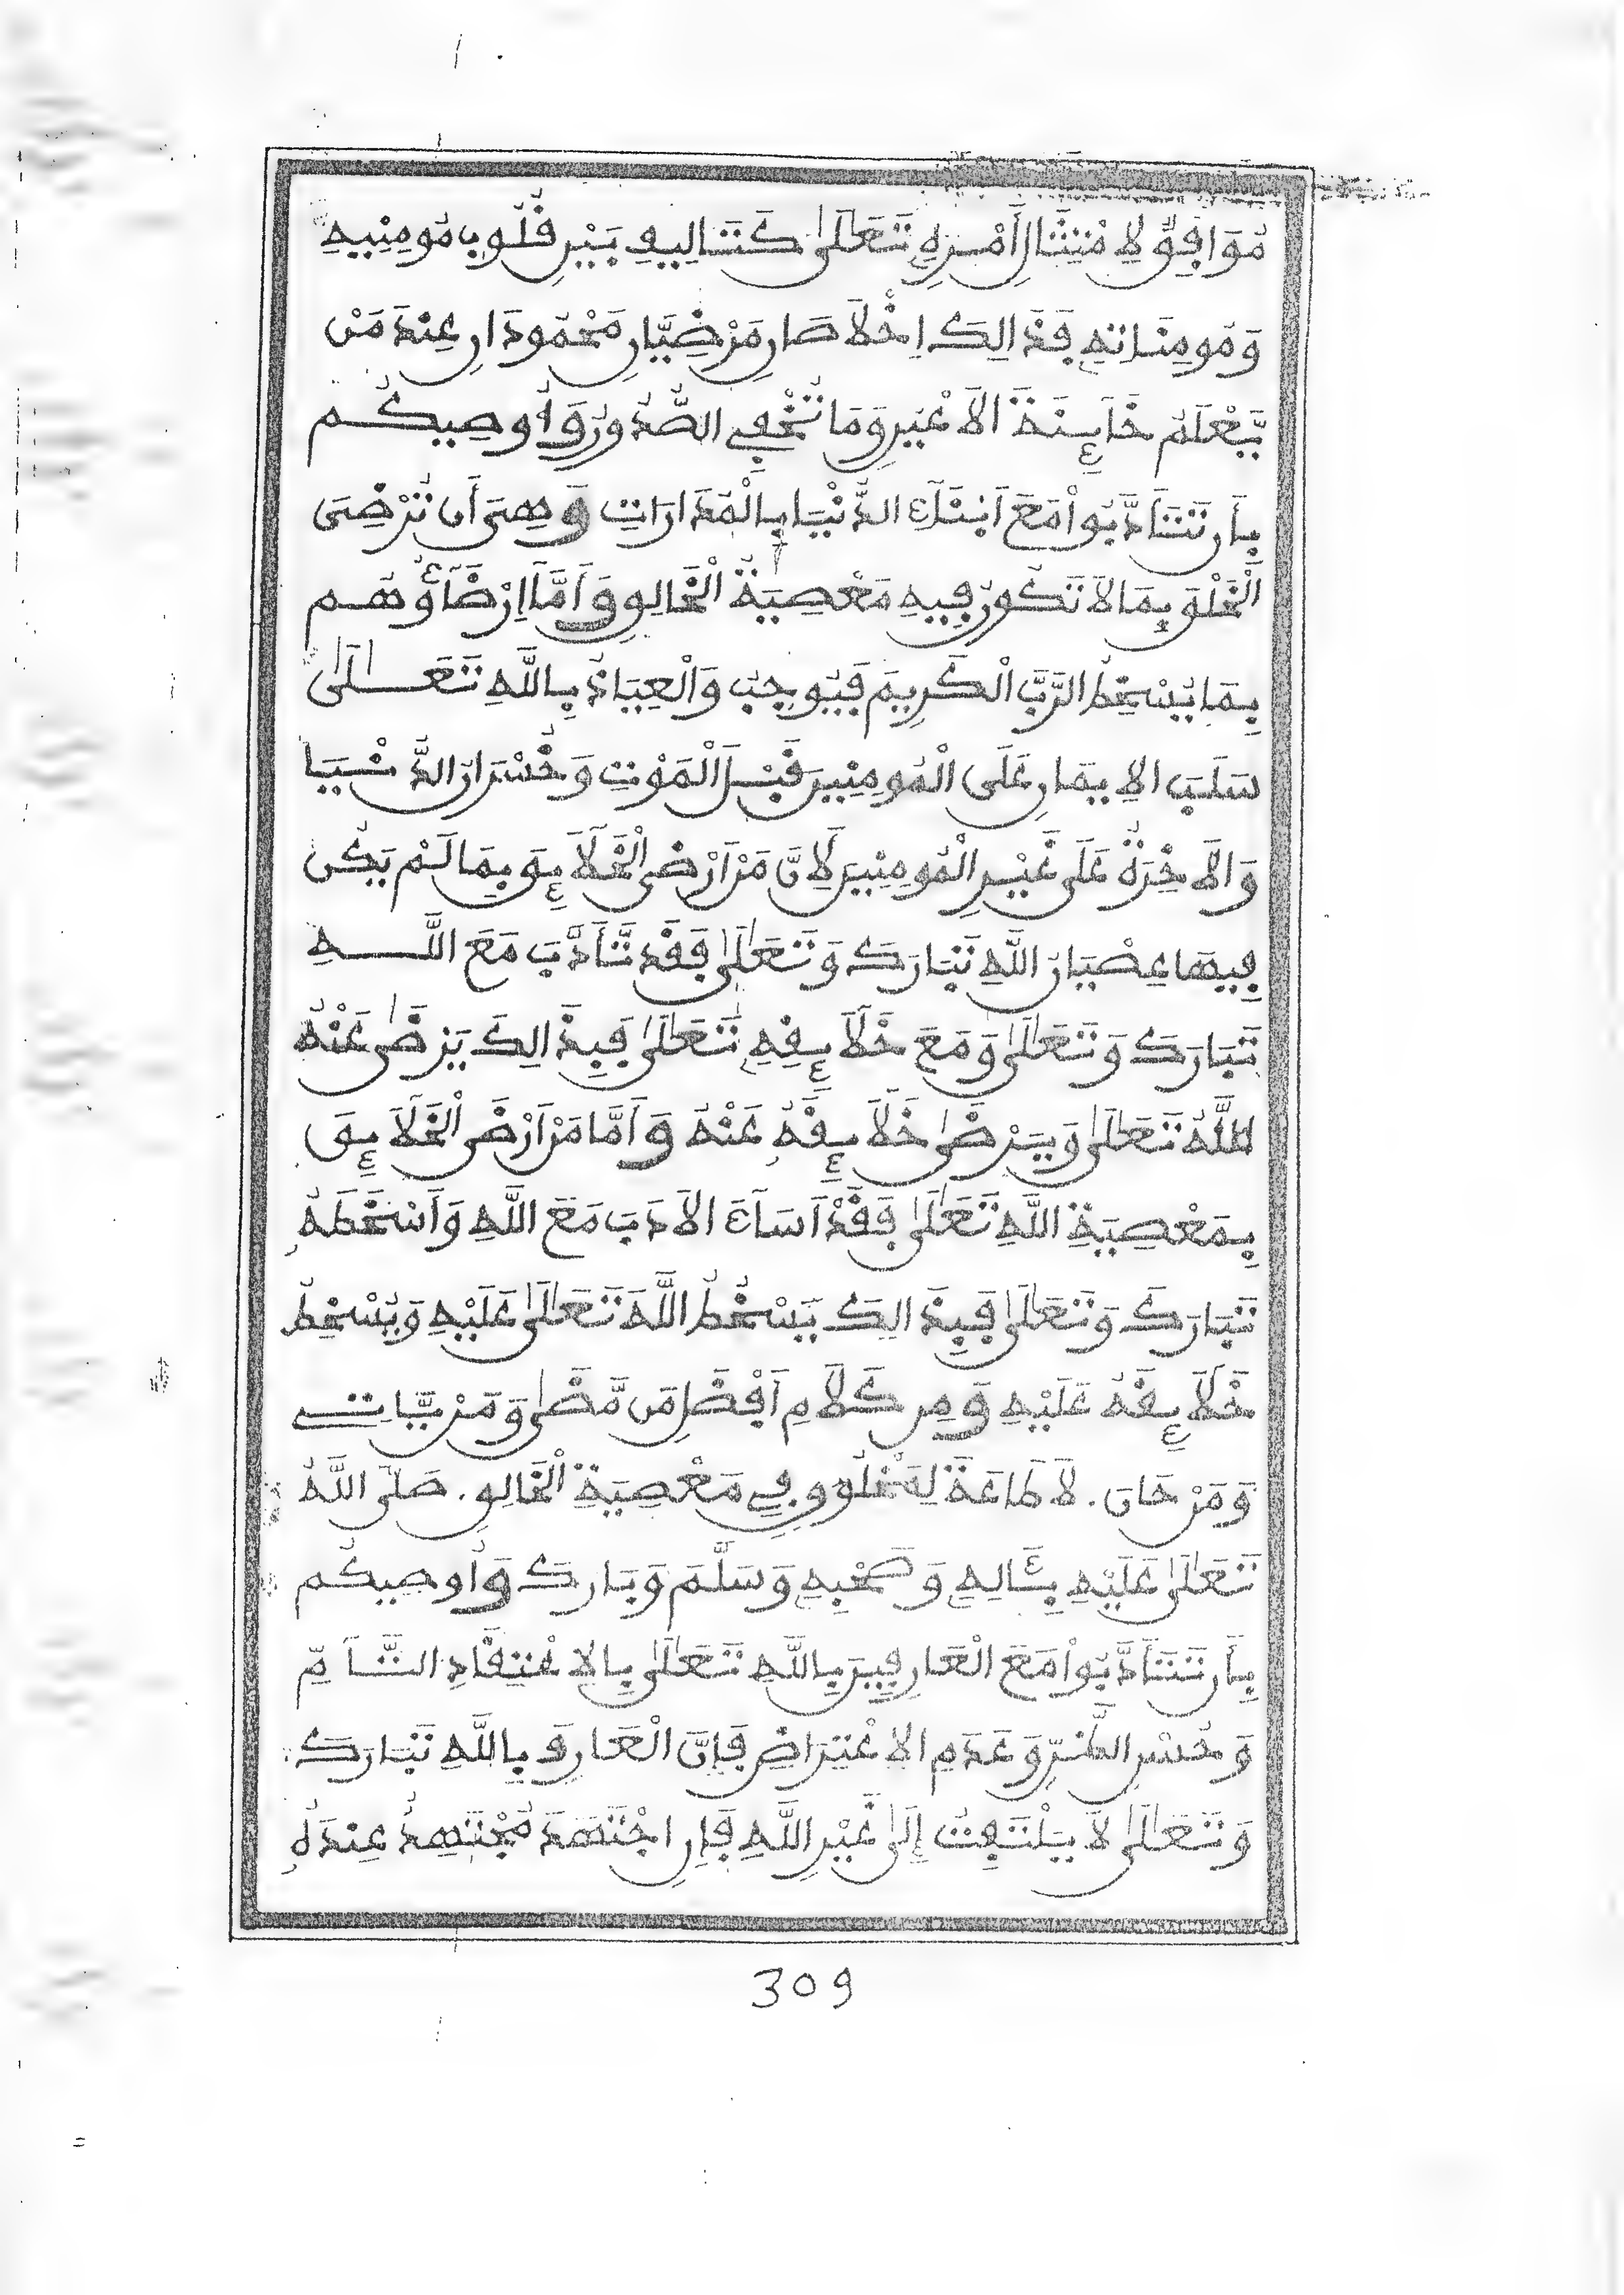 مُوَافِقٌ لِامْتِثَالِ أَمْرِهِ تَعَالَىٰ كَتَالِيفِ بَيْنِ قُلُوبِ مُومِنِيهِ
وَمُومِنَاتِهِ فَذَالِكَ إِخْلَاصَانِ مَرْضِيَّانِ مَحْمُودَانِ عِندَ مَن
يَّعْلَمُ خَآئِنَةَ الَاعْيُنِ وَمَا تُخْفِي الصُّدُورُ وَأُوصِيكُم
بِأَن تَتَأَدَّبُواْ مَعَ أَبْنَآءِ الدُّنْيَا بِالْمُدَارَاتِ وَهِىَ أَن تُرْضِىَ
الْخَلْقَ بِمَا لَا تَكُونُ فِيهِ مَعْصِيَةُ الْخَالِقِ وَأَمَّآ إِرْضَآؤُهُم
بِمَا يُسْخِطُ الرَّبَّ الْكَرِيمَ فَيُوجِبُ وَالْعِيَاذُ بِاللَّهِ تَعَالَىٰ
سَلَبَ الِايمَانِ عَلَى الْمُومِنِينَ قَبْلَ الْمَوْتِ وَخُسْرَانَ الدُّنْيَا
وَالَاخِرَةِ عَلَى غَيْرِ الْمُومِنِينَ لِأَنَّ مَنْ أَرْضَى الْخَلَآئِقَ بِمَا لَمْ يَكُن
فِيهَا عِصْيَانُ اللَّهِ تَبَارَكَ وَتَعَالَىٰ فَقَد تَّأَدَّبَ مَعَ اللَّهِ
تَبَارَكَ وَتَعَالَىٰ وَمَعَ خَلَآئِقِهِ تَعَالَىٰ فَبِذَالِكَ يَرْضَىٰ عَنْهُ
اللَّهُ تَعَالَىٰ وَيَرْضَىٰ خَلَآئِقُهُ عَنْهُ وَأَمَّا مَنْ أَرْضَى الْخَلَآئِقَ
بِمَعْصِيَةِ اللَّهِ تَعَالَىٰ فَقَدْ أَسَآءَ الَادَبَ مَعَ اللَّهِ وَأَسْخَطَهُ
تَبَارَكَ وَتَعَالَىٰ فَبِذَالِكَ يَسْخَطُ اللَّهُ تَعَالَىٰ عَلَيْهِ وَيُسْخِطُ
خَلَآئِقَهُ عَلَيْهِ وَمِن كَلَامِ أَفْضَلِ مَن مَّضَىٰ وَمَن يَّاتِي
وَمَنْ حَانَ. لَا طَاعَةَ لِمَخْلُوقٍ فِي مَعْصِيَةِ الْخَالِقِ. صَلَّى اللَّهُ
تَعَالَىٰ عَلَيْهِ بِـَٔالِهِ وَصَحْبِهِ وَسَلَّمَ وَبَارَكَ وَأُوصِيكُم
بِأَن تَتَأَدَّبُواْ مَعَ الْعَارِفِينَ بِاللَّهِ تَعَالَىٰ بِالِاعْتِقَادِ التَّآمِّ
وَحُسْنِ الظَّنِّ وَعَدَمِ الِاعْتِرَاضِ فَإِنَّ الْعَارِفَ بِاللَّهِ تَبَارَكَ
وَتَعَالَىٰ لَا يَلْتَفِتُ إِلَىٰ غَيْرِ اللَّهِ فَإِنِ اجْتَهَدَ مُجْتَهِدٌ عِندَهُ
309